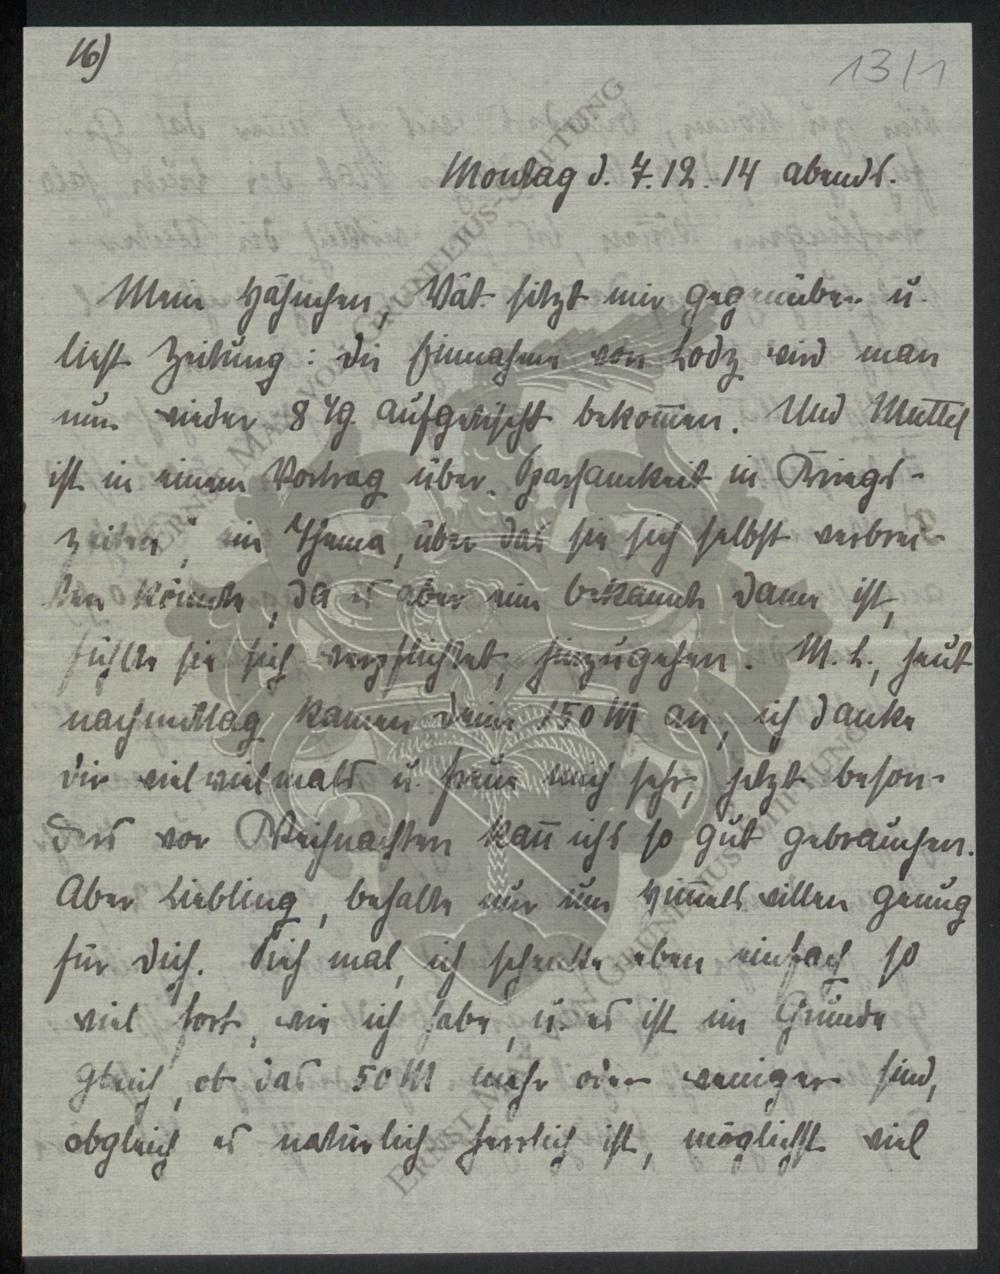 16)
13/1
Montag d. 7.12.14 abends.
Mein Hähnchen, Vat. sitzt mir gegenüber u.
liest Zeitung: die Einnahme von Lodz wird man
nun wieder 8 Tg. aufgetischt bekom̄en. Und Muttel
ist in einem Vortrag über „Sparsamkeit in Kriegs-
zeiten", ein Thema, über das sie sich selbst verbrei-
ten könnte, da es aber eine bekannte Dame ist,
fühlte sie sich verpflichtet, hinzugehen. M. L., heut
nachmittag kamen deine 150 M an, ich danke
dir viel vielmals u. freue mich sehr, jetzt beson-
ders vor Weihnachten kan̄ ichs so gut gebrauchen.
Aber Liebling, behalte nur um Himels willen genug
für dich. Sieh mal, ich schicke eben einfach so
viel fort, wie ich habe, u. es ist im Grunde
gleich, ob das 50 M mehr oder weniger sind,
obgleich es natürlich herrlich ist, möglichst viel
ERNST MAX VON GRUNELIUS-STIFTUNG
ERNST MAX VON GRUNELIUS-STIFTUNG